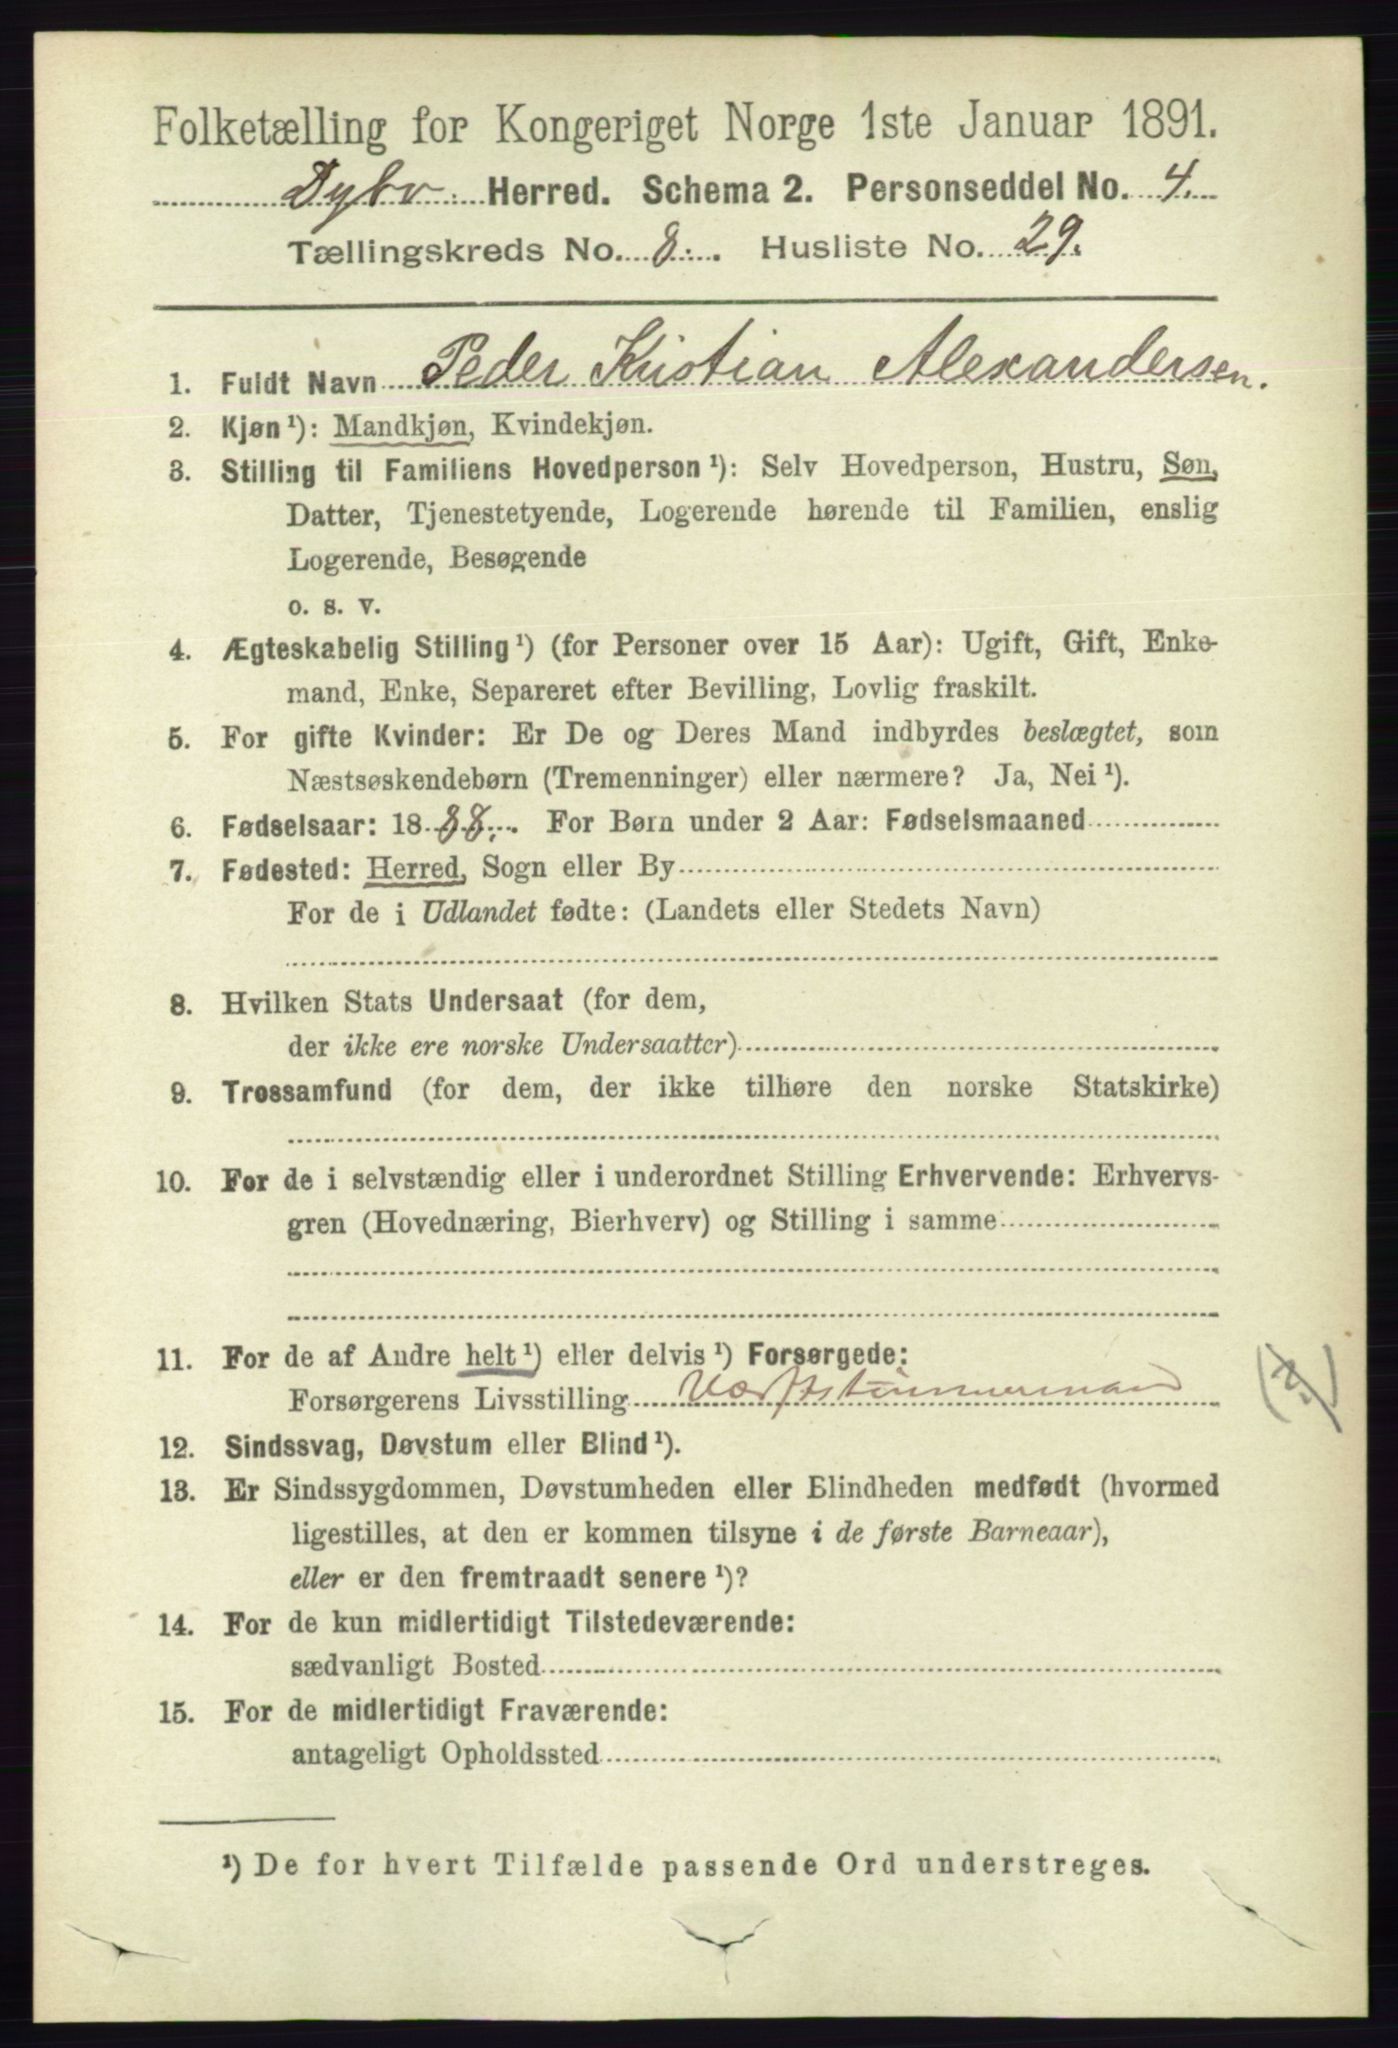 Folketælling for Kongeriget Norge 1ste Januar 1891.
Dybv. Herred. Schema 2. Personseddel No. 4.
Tællingskreds No. 8. Husliste No. 29.
1. Fuldt Navn Peder Kristian Alexandersen.
2. Kjøn ¹): Mandkjøn, Kvindekjøn.
3. Stilling til Familiens Hovedperson ¹): Selv Hovedperson, Hustru, Søn,
Datter, Tjenestetyende, Logerende hørende til Familien, enslig
Logerende, Besøgende
o. s. v.
4. Ægteskabelig Stilling ¹) (for Personer over 15 Aar): Ugift, Gift, Enke-
mand, Enke, Separeret efter Bevilling, Lovlig fraskilt.
5. For gifte Kvinder: Er De og Deres Mand indbyrdes beslægtet, som
Næstsøskendebørn (Tremenninger) eller nærmere? Ja, Nei ¹).
6. Fødselsaar: 1888. For Børn under 2 Aar: Fødselsmaaned
7. Fødested: Herred, Sogn eller By
For de i Udlandet fødte: (Landets eller Stedets Navn)
8. Hvilken Stats Undersaat (for dem,
der ikke ere norske Undersaatter)
9. Trossamfund (for dem, der ikke tilhøre den norske Statskirke)
10. For de i selvstændig eller i underordnet Stilling Erhvervende: Erhvervs-
gren (Hovednæring, Bierhverv) og Stilling i samme
11. For de af Andre helt ¹) eller delvis ¹) Forsørgede:
Forsørgerens Livsstilling Værftstømmermand
12. Sindssvag, Døvstum eller Blind ¹).
13. Er Sindssygdommen, Døvstumheden eller Blindheden medfødt (hvormed
ligestilles, at den er kommen tilsyne i de første Barneaar),
eller er den fremtraadt senere ¹)?
14. For de kun midlertidigt Tilstedeværende:
sædvanligt Bosted
15. For de midlertidigt Fraværende:
antageligt Opholdssted
¹) De for hvert Tilfælde passende Ord understreges.